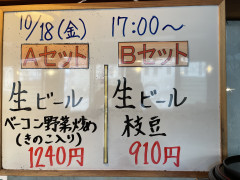 10/18(金) 17:00～
Aセット
生ビール
ベーコン野菜炒め
(きのこ入り)
1240円
Bセット
生ビール
枝豆
910円